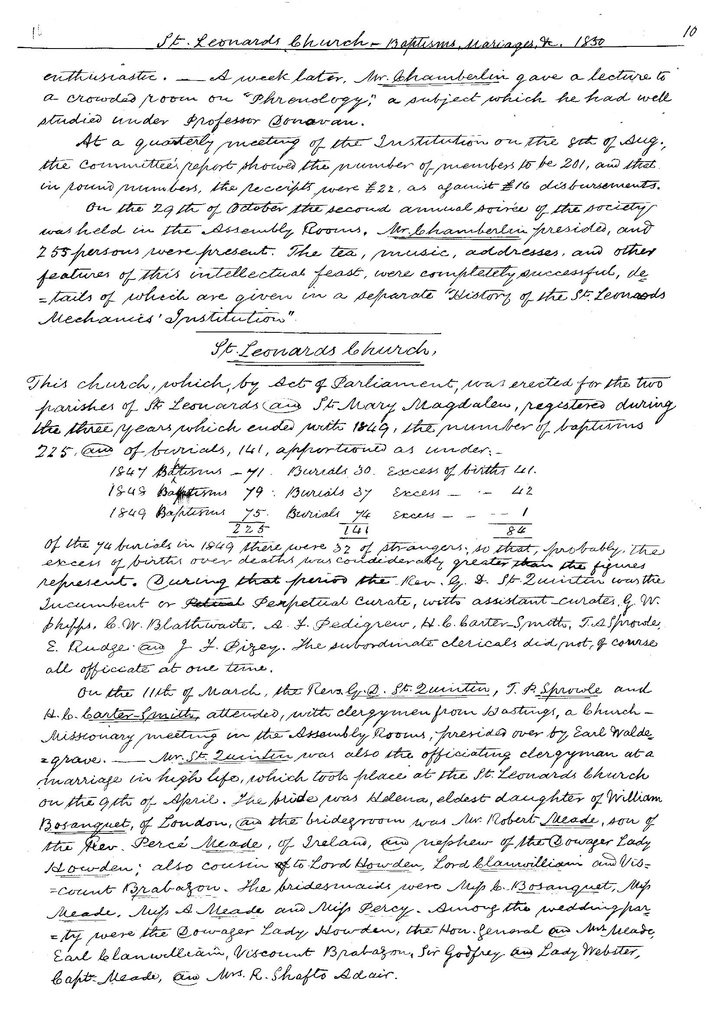 St. Leonards Church – Baptisms, Mariages, &. 1850
10
enthusiastic. — A week later, Mr. Chamberlin gave a lecture to
a crowded room on "Phrenology," a subject which he had well
studied under Professor Donavan.
At a quarterly meeting of the Institution on the 8th of Aug.,
the Committee's report showed the number of members to be 201, and that
in round numbers, the receipts were £22, as against £16 disbursements.
On the 29th of October the second annual soirée of the society
was held in the Assembly Rooms. Mr. Chamberlin presided, and
255 persons were present. The tea, music, addresses, and other
features of this intellectual feast, were completely successful, de=
=tails of which are given in a separate "History of the St. Leonards
Mechanics' Institution".
St. Leonards Church,
This church, which, by Act of Parliament, was erected for the two
parishes of St. Leonards and St. Mary Magdalen, registered during
the three years which ended with 1849, the number of baptisms
225, and of burials, 141, apportioned as under:-
1847 Baptisms – 71. Burials 30. Excess of births 41.
1848 Baptisms 79. Burials 37 Excess – .. – 42
1849 Baptisms 75. Burials 74 Excess – – – – 1
225 141 84
Of the 74 burials in 1849 there were 32 of strangers; so that, probably, the
excess of births over deaths was considerably greater than the figures
represent. During that period the Rev. G. D. St. Quintin was the
Incumbent or Perpetual curate, with assistant-curates, G. W.
Phipps, C. W. Blathwaite, A. F. Pedigrew, H. C. Carter-Smith, T. A Sprowle,
E. Rudge and J. F. Pizey. The subordinate clericals did not, of course
all officiate at one time.
On the 11th of March, the Revs. G. D. St. Quintin, T. P. Sprowle and
H. C. Carter-Smith, attended, with clergymen from Hastings, a Church-
Missionary meeting in the Assembly Rooms, presided over by Earl Walde=
=grave. — Mr. St. Quintin was also the officiating clergyman at a
marriage in high life, which took place at the St. Leonards Church
on the 9th of April. The bride was Helena, eldest daughter of William
Bosanquet, of London, and the bridegroom was Mr. Robert Meade, son of
the Rev. Percé Meade, of Ireland, and nephew of the Dowager Lady
Howden; also cousin to Lord Howden, Lord Clanwilliam and Vis=
=count Brabazon. The bridesmaids were Miss C. Bosanquet, Miss
Meade, Miss A Meade and Miss Percy. Among the wedding par=
=ty were the Dowager Lady Howden, the Hon. General and Mrs. Meade,
Earl Clanwilliam, Viscount Brabazon, Sir Godfrey and Lady Webster,
Capt. Meade, and Mrs. R. Shafto Adair.